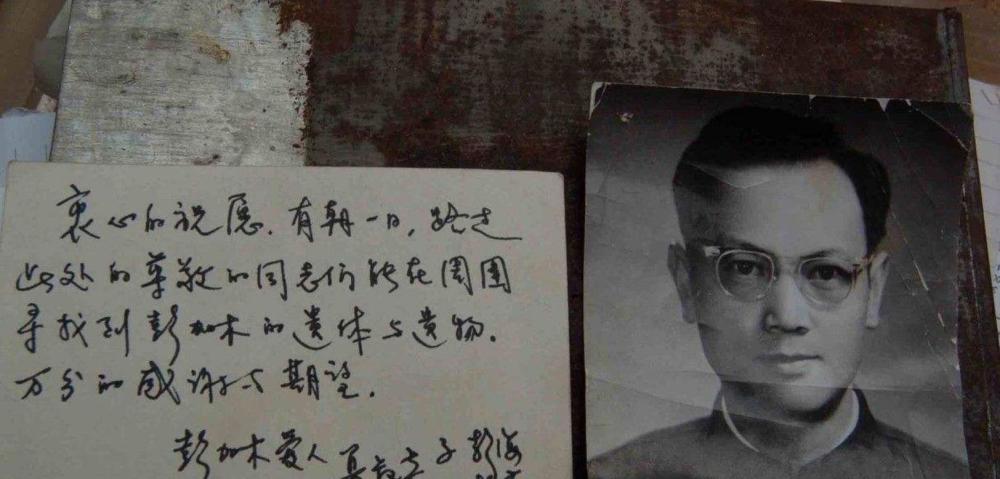 衷心的祝愿.有朝一日,路过
此处的尊敬的同志们能在周围
寻找到彭加木的遗体与遗物.
万分的感谢与期望.
彭加木爱人 夏叔芳 子 彭海